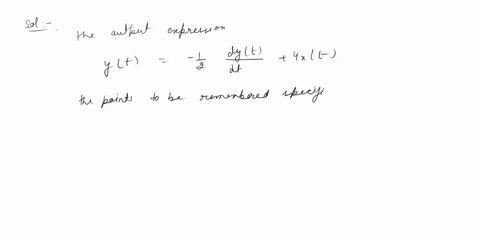 Sol:-
The output expression
y(t) = -1/2 dy(t)/dt + 4x(t)
the points to be remembered specify